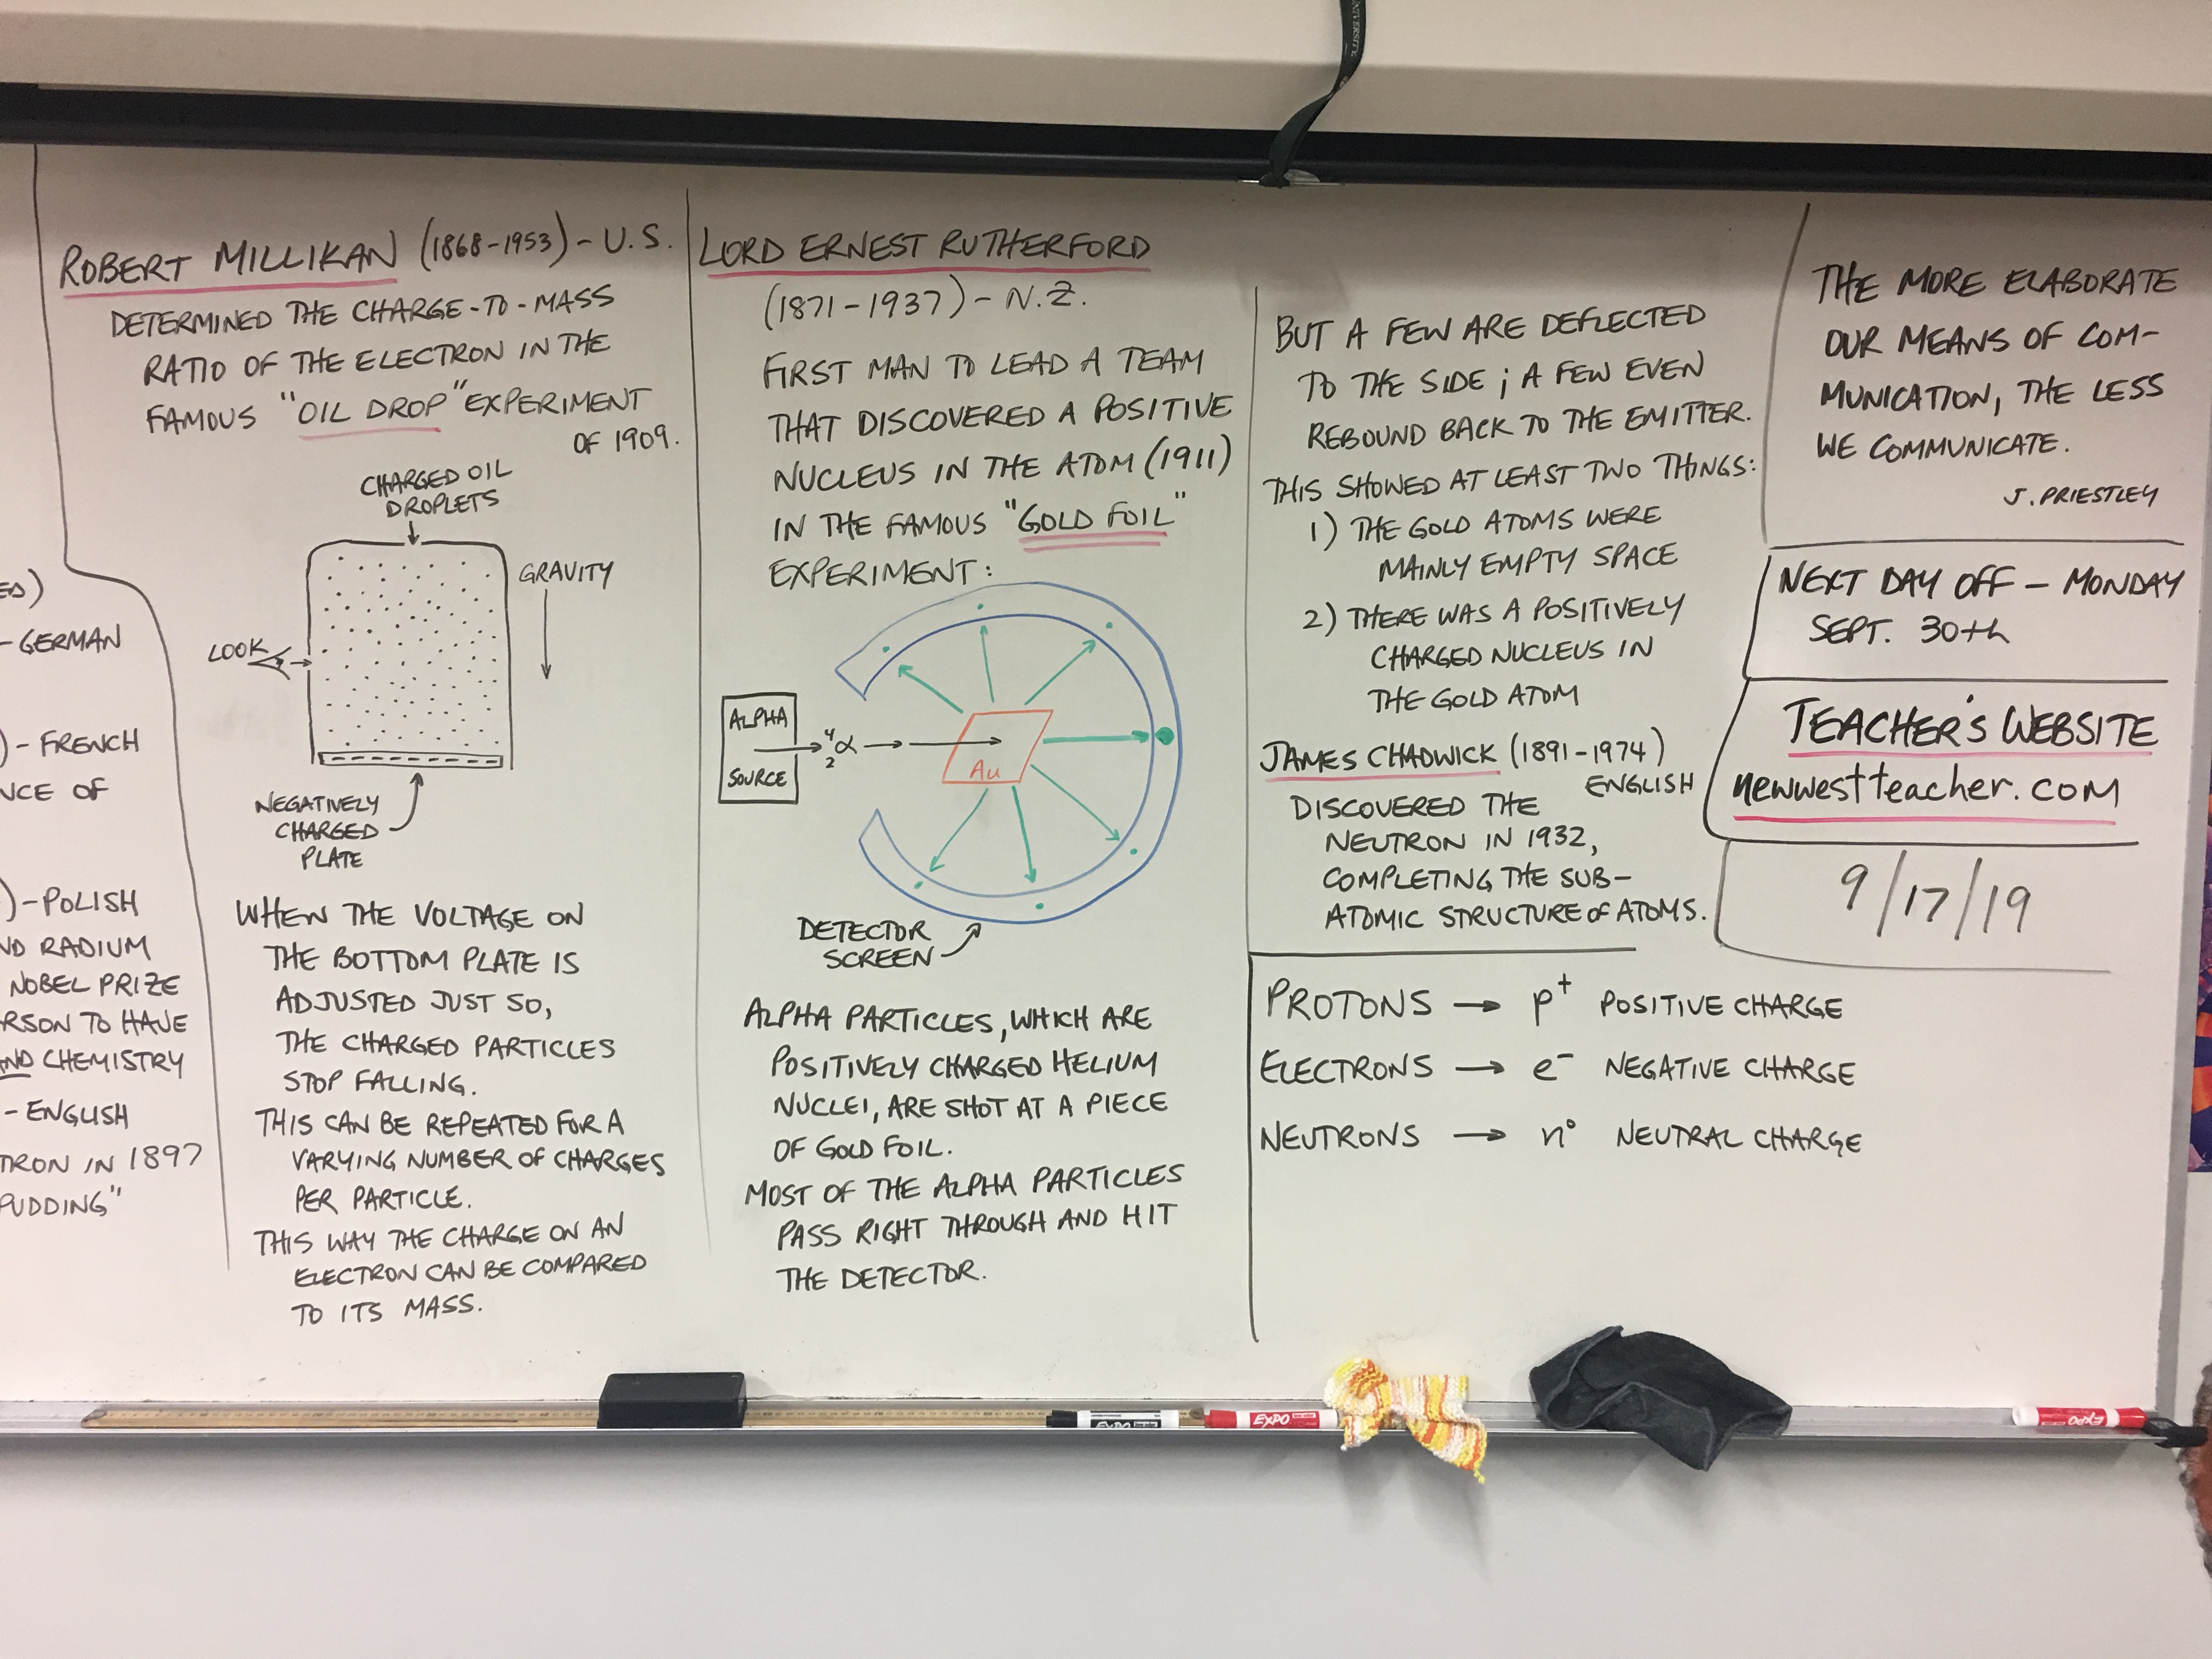 UNIVERSITY
ED)
- GERMAN
) - FRENCH
NCE OF
) - POLISH
ND RADIUM
NOBEL PRIZE
RSON TO HAVE
AND CHEMISTRY
- ENGLISH
TRON IN 1897
PUDDING"
ROBERT MILLIKAN (1868-1953) - U.S.
DETERMINED THE CHARGE-TO-MASS
RATIO OF THE ELECTRON IN THE
FAMOUS "OIL DROP" EXPERIMENT
OF 1909.
CHARGED OIL
DROPLETS
GRAVITY
LOOK
NEGATIVELY
CHARGED
PLATE
WHEN THE VOLTAGE ON
THE BOTTOM PLATE IS
ADJUSTED JUST SO,
THE CHARGED PARTICLES
STOP FALLING.
THIS CAN BE REPEATED FOR A
VARYING NUMBER OF CHARGES
PER PARTICLE.
THIS WAY THE CHARGE ON AN
ELECTRON CAN BE COMPARED
TO ITS MASS.
LORD ERNEST RUTHERFORD
(1871-1937) - N.Z.
FIRST MAN TO LEAD A TEAM
THAT DISCOVERED A POSITIVE
NUCLEUS IN THE ATOM (1911)
IN THE FAMOUS "GOLD FOIL"
EXPERIMENT:
ALPHA
SOURCE
→ ⁴₂α → →
Au
DETECTOR
SCREEN
ALPHA PARTICLES, WHICH ARE
POSITIVELY CHARGED HELIUM
NUCLEI, ARE SHOT AT A PIECE
OF GOLD FOIL.
MOST OF THE ALPHA PARTICLES
PASS RIGHT THROUGH AND HIT
THE DETECTOR.
BUT A FEW ARE DEFLECTED
TO THE SIDE; A FEW EVEN
REBOUND BACK TO THE EMITTER.
THIS SHOWED AT LEAST TWO THINGS:
1) THE GOLD ATOMS WERE
MAINLY EMPTY SPACE
2) THERE WAS A POSITIVELY
CHARGED NUCLEUS IN
THE GOLD ATOM
JAMES CHADWICK (1891-1974)
ENGLISH
DISCOVERED THE
NEUTRON IN 1932,
COMPLETING THE SUB-
ATOMIC STRUCTURE OF ATOMS.
PROTONS → p⁺ POSITIVE CHARGE
ELECTRONS → e⁻ NEGATIVE CHARGE
NEUTRONS → n⁰ NEUTRAL CHARGE
THE MORE ELABORATE
OUR MEANS OF COM-
MUNICATION, THE LESS
WE COMMUNICATE.
J. PRIESTLEY
NEXT DAY OFF - MONDAY
SEPT. 30th
TEACHER'S WEBSITE
newwestteacher.com
9/17/19
EXPO
EXPO
EXPO